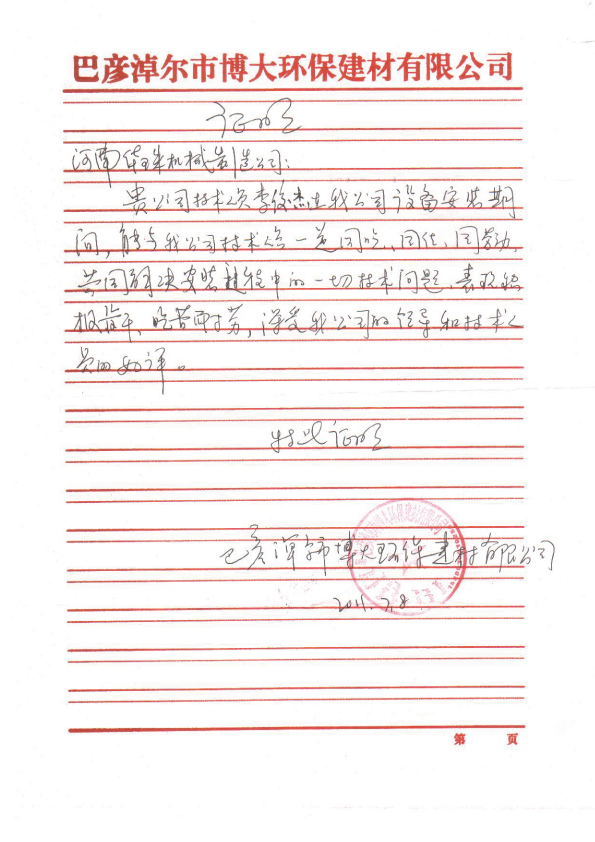 巴彦淖尔市博大环保建材有限公司
证明
河南华珠机械制造公司：
贵公司技术人员李俊杰在我公司设备安装期
间，能与我公司技术人员一道同吃、同住、同劳动，
共同解决安装过程中的一切技术问题，表现积
极肯干、吃苦耐劳，深受我公司的领导和技术人
员的好评。
特此证明
巴彦淖尔市博大环保建材有限公司
2011.7.8
第 页